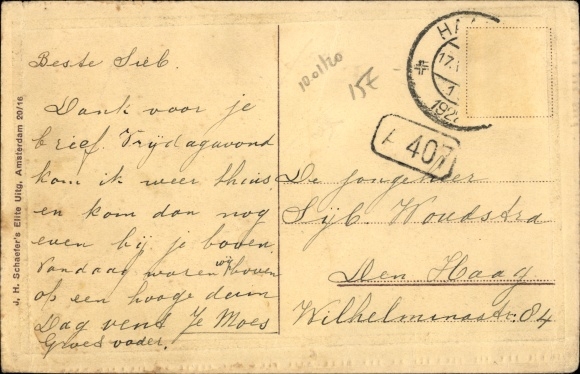 Beste Sieb.
Dank voor je
brief. Vrijdagavond
kom ik weer thuis
en kom dan nog
even bij je boven
Vandaag waren wij boven
op een hooge duin
Dag vent Je Moes
Groet vader.
J. H. Schaefer's Elite Uitg. Amsterdam 20/16
10.01/20
15E
HA
17.
1
192
407
De jongeheer
Sijb. Woudstra
Den Haag
Wilhelminastr. 84